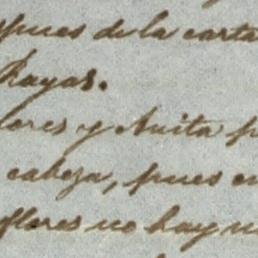 spues de la carta
Rayas.
lores y Anita p
cabeza, pues e
flores no hay n